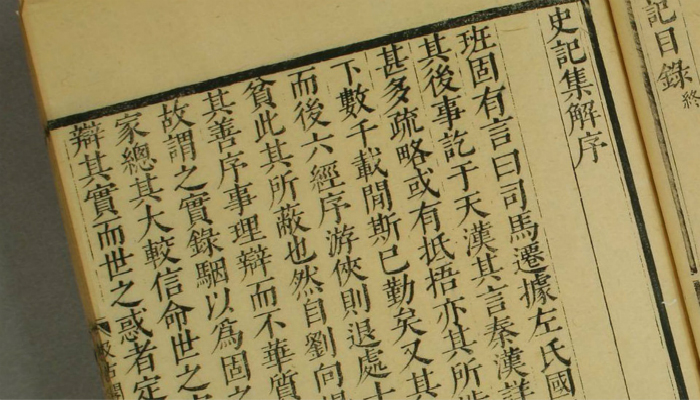 記目錄終
史記集解序
班固有言曰司馬遷據左氏國
其後事訖于天漢其言秦漢詳
甚多疏略或有抵捂亦其所
下數千載閒斯已勤矣又其
而後六經序游俠則退處士
貧此其所蔽也然自劉向
其善序事理辯而不華質
故謂之實錄駰以為固之
家總其大較信命世之
辯其實而世之惑者定